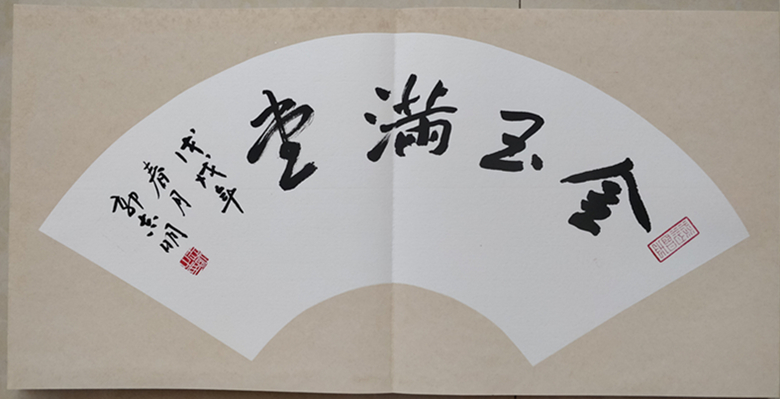 金玉满堂
戊戌年
春月
郭志明